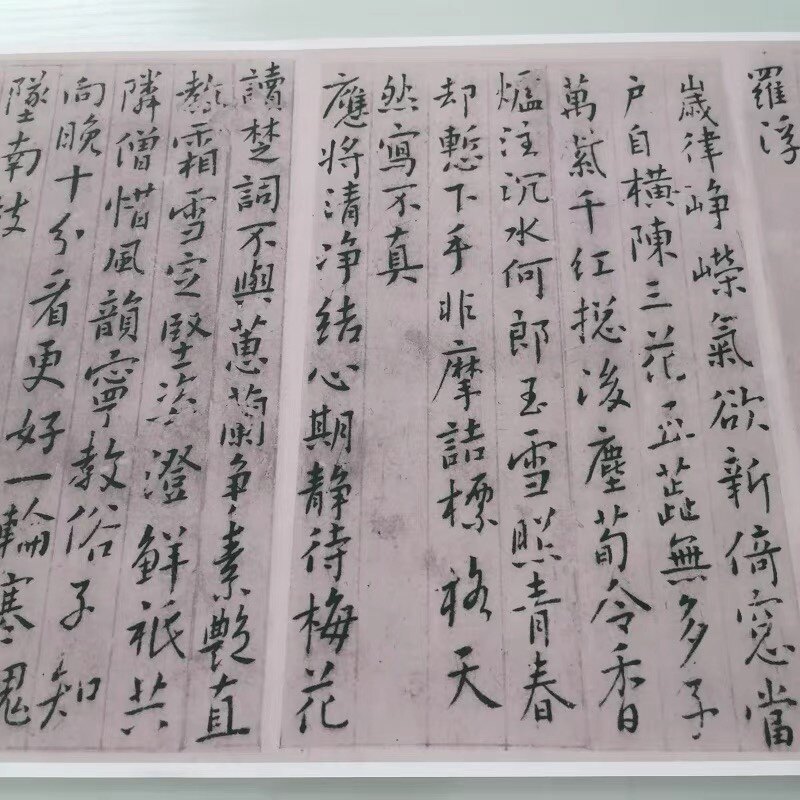 羅浮
歲律崢嶸氣欲新倚窓當
戶自橫陳三花五蕋無多子
萬紫千紅揔後塵荀令香
爐注沉水何郎玉雪照青春
却慙下手非摩詰標格天
然寫不真
應將清净結心期静待梅花
讀楚詞不與蕙蘭争素艷直
教霜雪定堅姿澄鮮祇共
隣僧惜風韻寧教俗子知
向晚十分看更好一輪寒
墜南枝